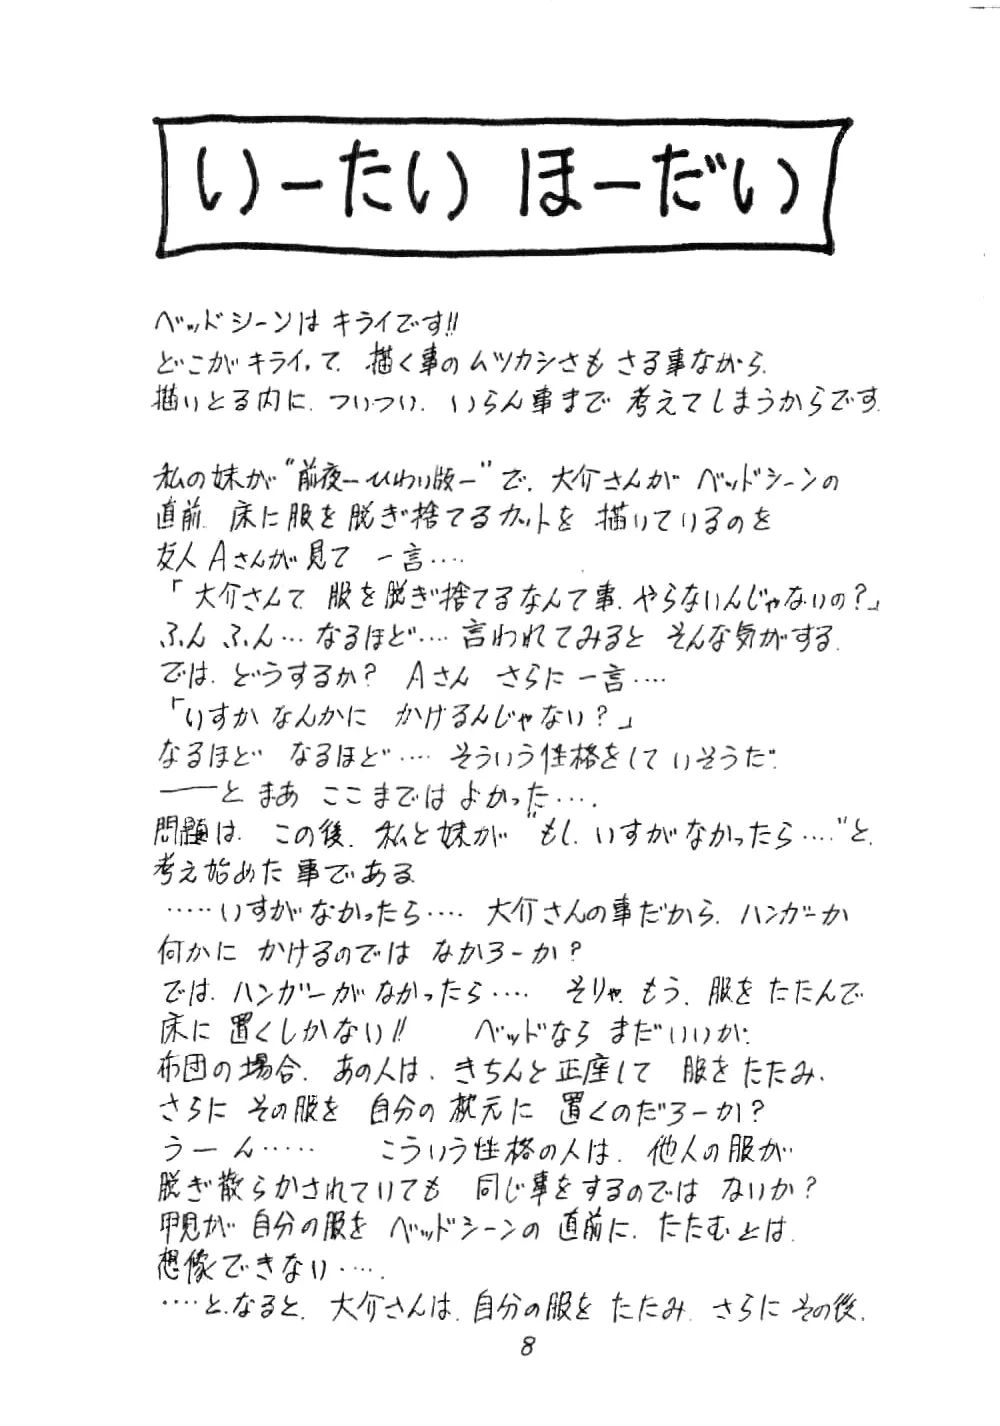 いーたい ほーだい
ベッドシーンは キライです!!
どこがキライって、描く事のムツカシさも さる事ながら、
描いとる内に、ついつい、いらん事まで 考えてしまうからです。
私の妹が“前夜ーひわい版ー”で、大介さんが ベッドシーンの
直前、床に服を脱ぎ捨てるカットを 描いているのを
友人Aさんが見て 一言‥‥
「大介さんて、服を脱ぎ捨てるなんて事、やらないんじゃないの?」
ふん ふん…なるほど‥‥言われてみると そんな気がする。
では、どうするか? Aさん さらに一言‥‥
「いすか なんかに かけるんじゃない?」
なるほど なるほど‥‥そういう性格をして いそうだ。
──と まあ ここまでは よかった‥‥。
問題は、この後、私と妹が“もし、いすがなかったら‥‥”と、
考え始めた事である。
‥‥‥いすがなかったら‥‥ 大介さんの事だから、ハンガーか
何かに かけるのでは なかろーか?
では、ハンガーがなかったら‥‥ そりゃ、もう、服をたたんで
床に 置くしかない!! ベッドなら まだいいが、
布団の場合、あの人は、きちんと正座して 服をたたみ、
さらに その服を 自分の枕元に 置くのだろーか?
うーん‥‥‥ こういう性格の人は、他人の服が
脱ぎ散らかされていても 同じ事をするのでは ないか?
甲児が 自分の服を ベッドシーンの 直前に、たたむとは、
想像できない‥‥。
‥‥と、なると、大介さんは、自分の服を たたみ、さらに その後、
8